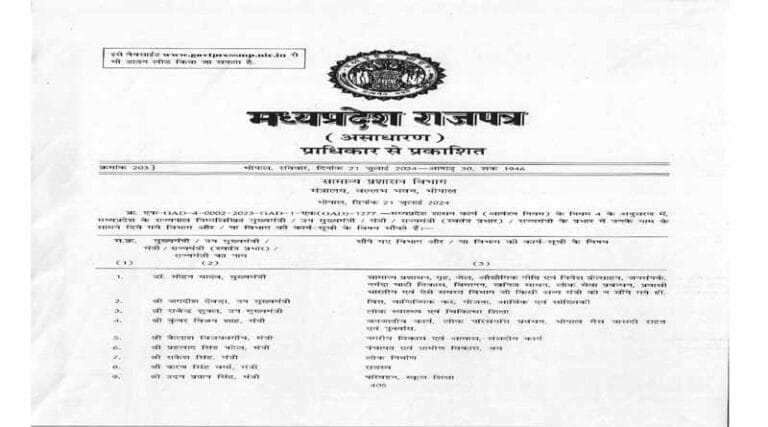 इसे वेबसाईट www.govtpressmp.nic.in से
भी डाउन लोड किया जा सकता है.
मध्यप्रदेश राजपत्र
( असाधारण )
प्राधिकार से प्रकाशित
क्रमांक 203 ]
भोपाल, रविवार, दिनांक 21 जुलाई 2024—आषाढ़ 30, शक 1946
सामान्य प्रशासन विभाग
मंत्रालय, वल्लभ भवन, भोपाल
भोपाल, दिनांक 21 जुलाई 2024
क्र. एफ-GAD-4-0002-2023-GAD-1-एक(GAD)-1277.—मध्यप्रदेश शासन कार्य (आवंटन नियम) के नियम 4 के अनुसरण में,
मध्यप्रदेश के राज्यपाल निम्नलिखित मुख्यमंत्री / उप मुख्यमंत्री / मंत्री / राज्यमंत्री (स्वतंत्र प्रभार) / राज्यमंत्री के प्रभार में उनके नाम के
सामने दिये गये विभाग और / या विभाग की कार्य-सूची के विषय सौंपते हैं:—
स.क्र. मुख्यमंत्री / उप मुख्यमंत्री / सौंपे गए विभाग और / या विभाग की कार्य-सूची के विषय
मंत्री / राज्यमंत्री (स्वतंत्र प्रभार) /
राज्यमंत्री का नाम
(1) (2) (3)
1. डॉ. मोहन यादव, मुख्यमंत्री सामान्य प्रशासन, गृह, जेल, औद्योगिक नीति एवं निवेश प्रोत्साहन, जनसंपर्क,
नर्मदा घाटी विकास, विमानन, खनिज साधन, लोक सेवा प्रबन्धन, प्रवासी
भारतीय एवं ऐसे समस्त विभाग जो किसी अन्य मंत्री को न सौंपे गये हों.
2. श्री जगदीश देवड़ा, उप मुख्यमंत्री वित्त, वाणिज्यिक कर, योजना, आर्थिक एवं सांख्यिकी
3. श्री राजेन्द्र शुक्ल, उप मुख्यमंत्री लोक स्वास्थ्य एवं चिकित्सा शिक्षा
4. श्री कुंवर विजय शाह, मंत्री जनजातीय कार्य, लोक परिसंपत्ति प्रबंधन, भोपाल गैस त्रासदी राहत
एवं पुनर्वास.
5. श्री कैलाश विजयवर्गीय, मंत्री नगरीय विकास एवं आवास, संसदीय कार्य
6. श्री प्रहलाद सिंह पटेल, मंत्री पंचायत एवं ग्रामीण विकास, श्रम
7. श्री राकेश सिंह, मंत्री लोक निर्माण
8. श्री करण सिंह वर्मा, मंत्री राजस्व
9. श्री उदय प्रताप सिंह, मंत्री परिवहन, स्कूल शिक्षा
405